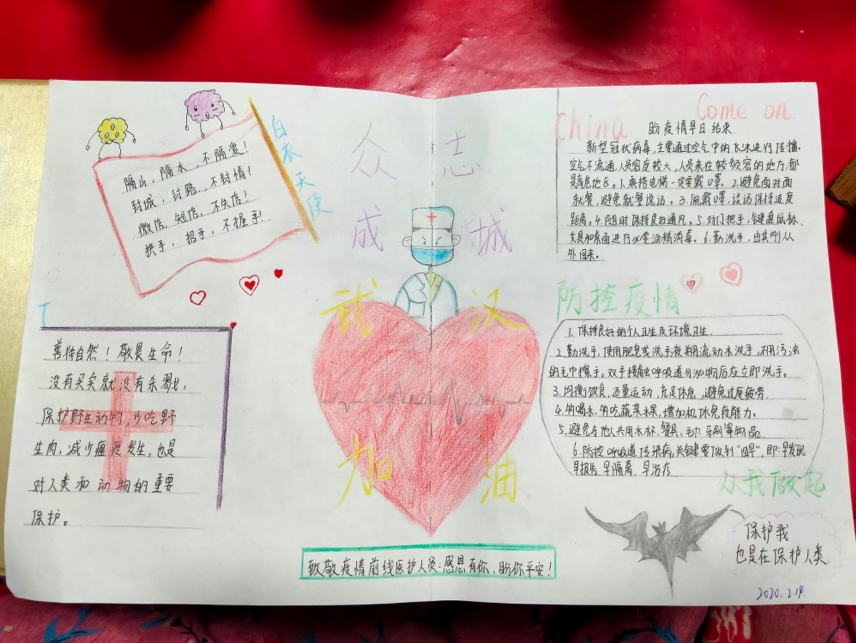 众志
成城
白衣天使
隔山,隔水,不隔爱!
封城,封路,不封情!
微信,短信,不失信!
挟手,招手,不握手!
China Come on.
盼疫情早日结束
新型冠状病毒,主要通过空气中的飞沫进行传播.
空气不流通,人员密度较大,人员来往较密的地方,都
是高危地区.1.乘搭电梯一定要戴口罩.2.避免面对面
就餐,避免就餐说话.3.佩戴口罩,谈话保持适度
距离.4.随时保持良好通风.5.对门把手,键盘鼠标、
文具和桌面进行必要酒精消毒.6.勤洗手,尤其刚从
外回来.
武汉
加油
防控疫情
1.保持良好的个人卫生及环境卫生.
2.勤洗手,使用肥皂或洗手液用流动水洗手,不用污浊
的毛巾擦手.双手接触呼吸道分泌物后应立即洗手.
3.均衡饮食,适量运动,充足休息,避免过度疲劳.
4.的喝水,的吃蔬菜水果,增加机体免疫能力.
5.避免与他人共用水杯、餐具、毛巾、牙刷等物品.
6.防控呼吸道传染病,关键要做到“四早”,即:早发现
早报告、早隔离、早治疗
从我做起
T
善待自然!敬畏生命!
没有买卖就没有杀戮,
保护野生动物,少吃野
生肉,减少瘟疫发生,也是
对人类和动物的重要
保护。
致敬疫情前线医护人员:感恩有你、盼你平安!
保护我
也是在保护人类.
2020.2.14.